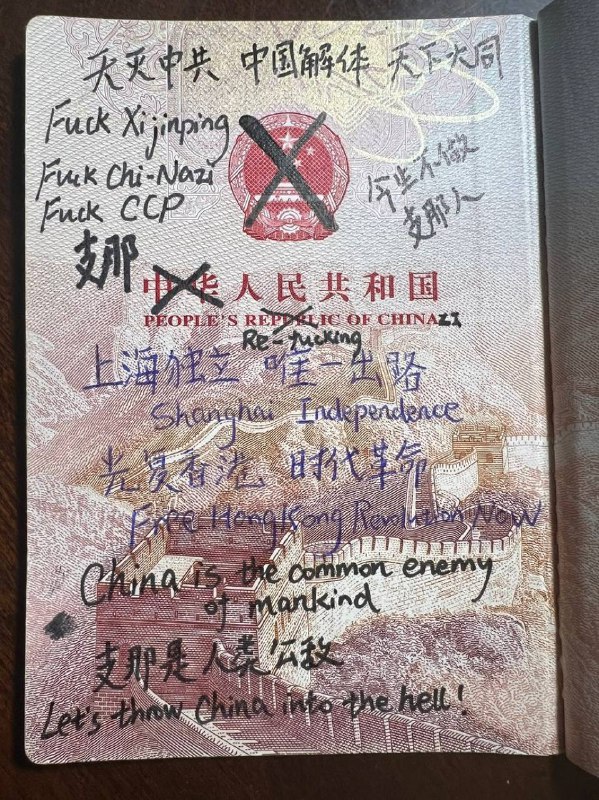 天灭中共 中国解体 天下大同
Fuck Xijinping
Fuck Chi-Nazi
Fuck CCP
今生不做
支那人
支那
中华人民共和国
PEOPLE'S REPUBLIC OF CHINAZI
Re-fucking
上海独立 唯一出路
Shanghai Independence
光复香港 时代革命
Free HongKong Revolution Now
China is the common enemy
of mankind
支那是人类公敌
Let's throw China into the hell!